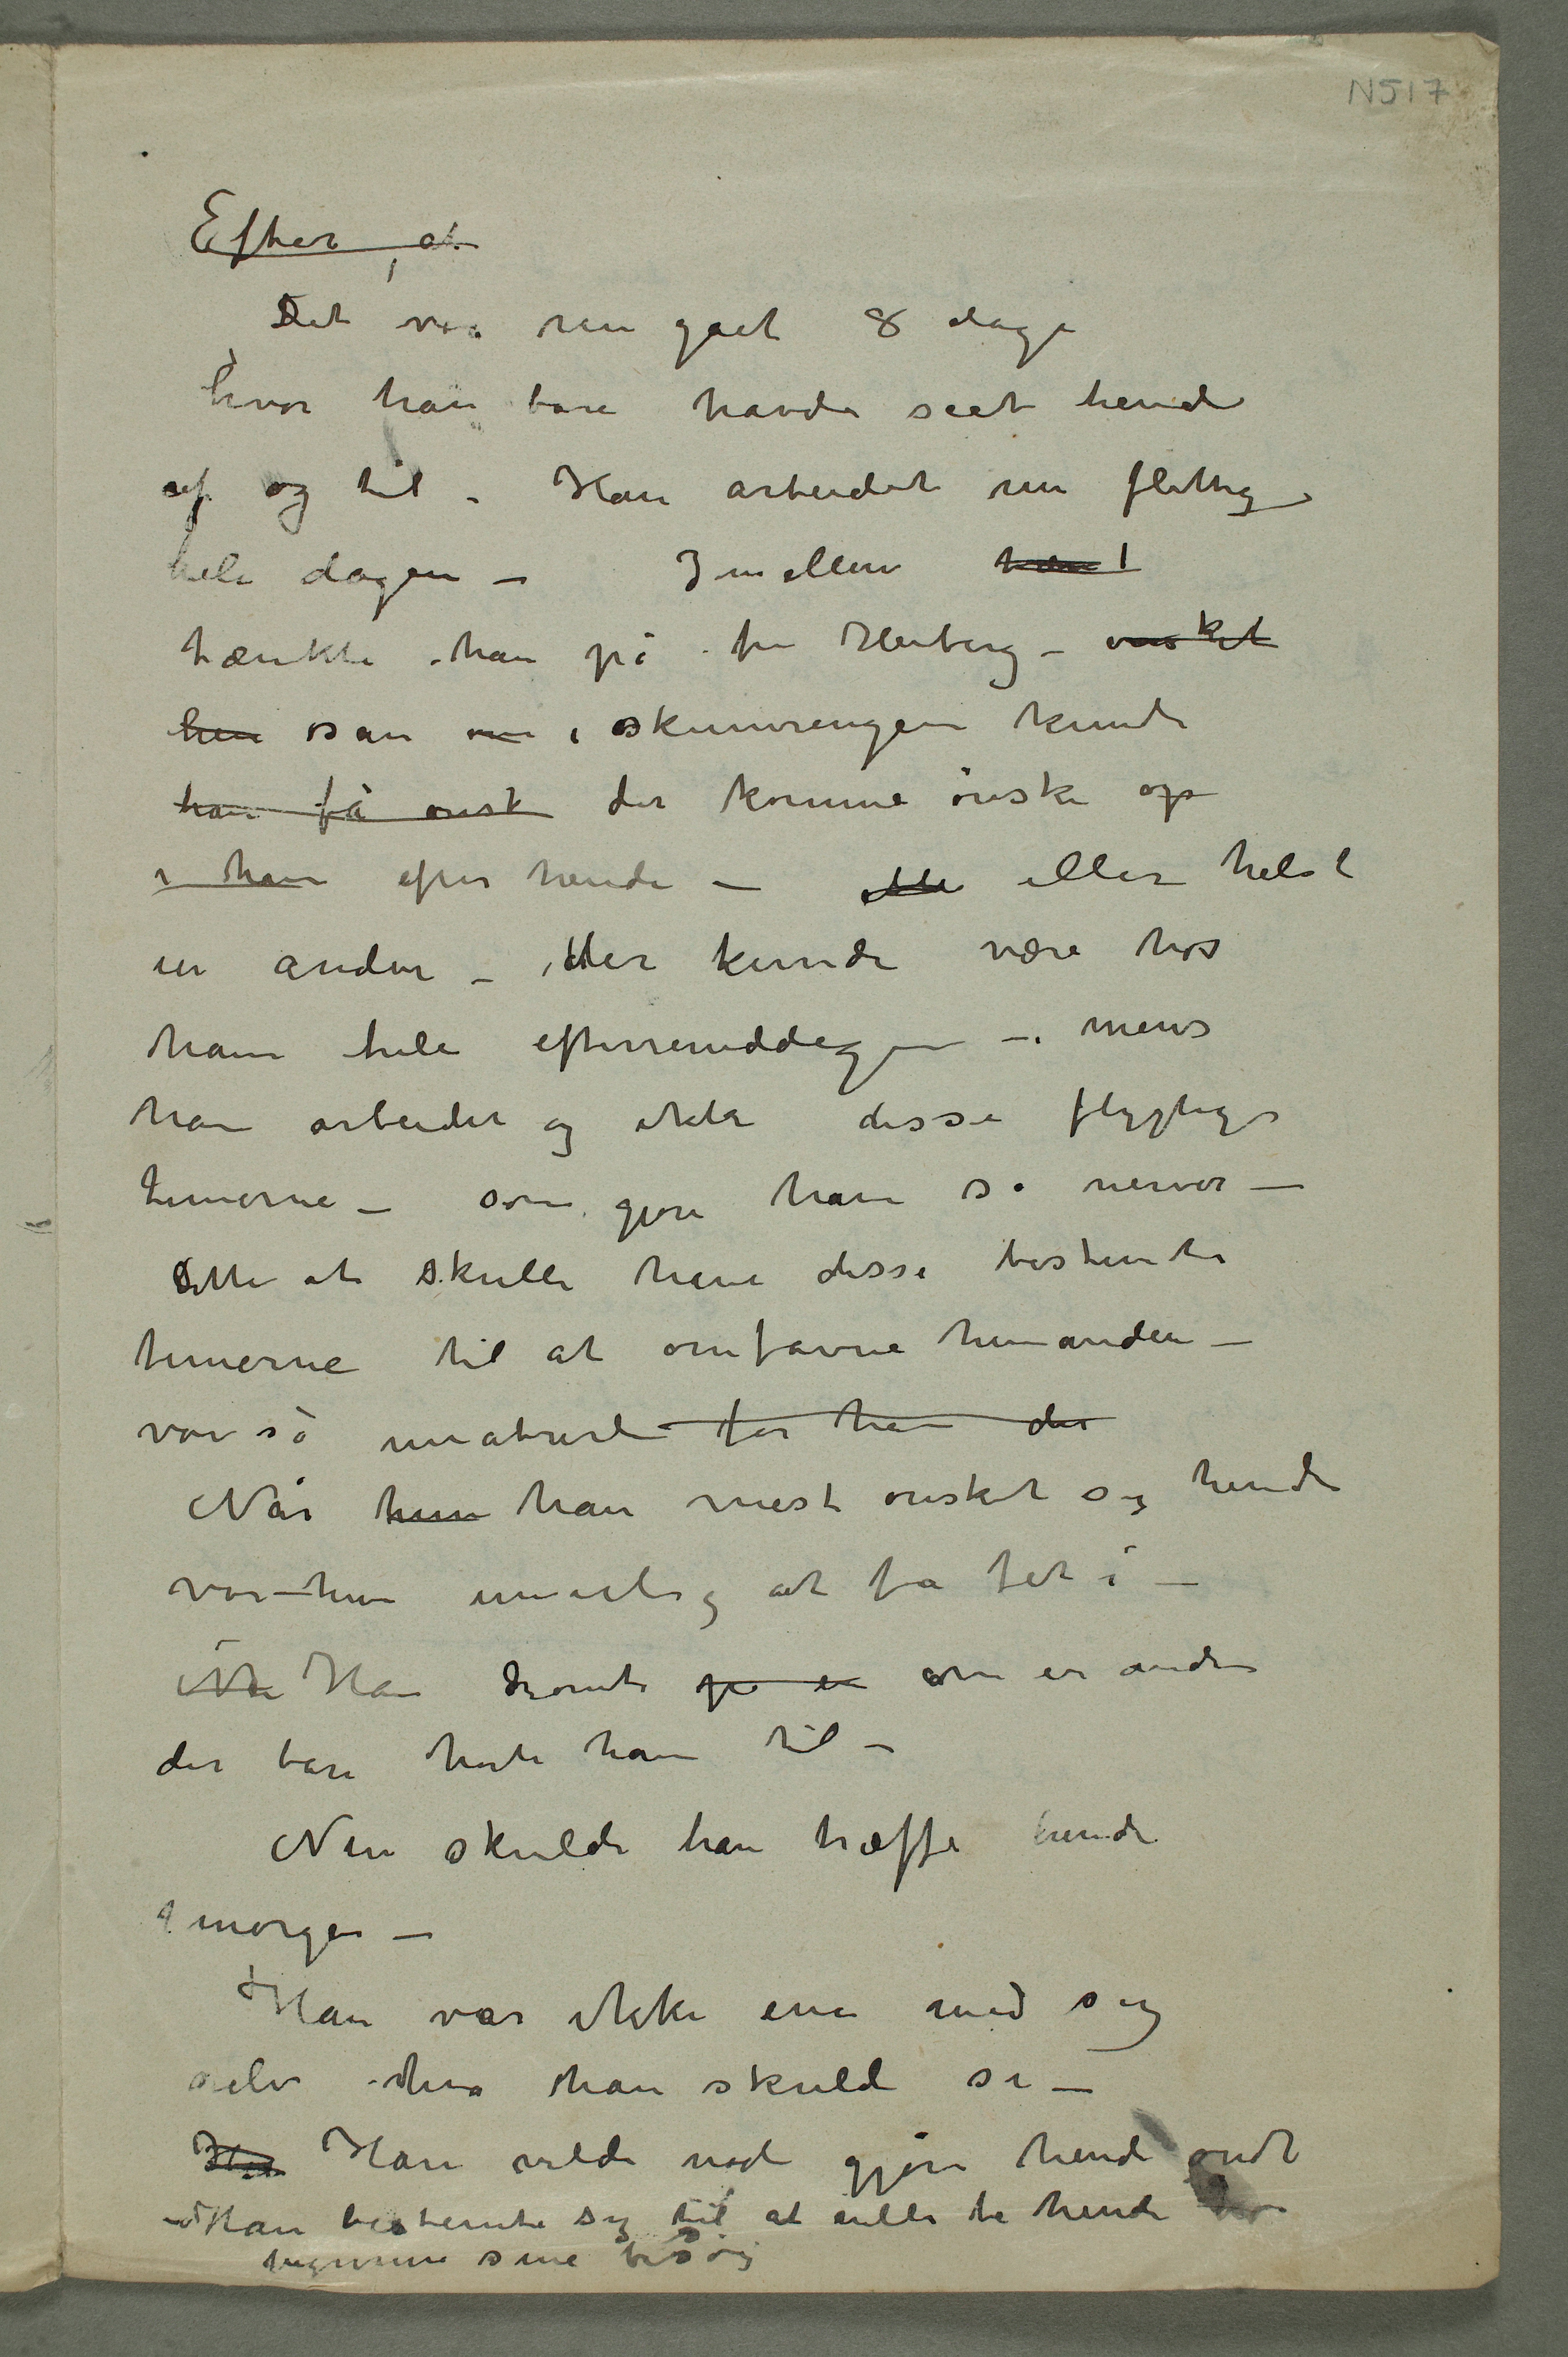 N517
Efter at
Det var nu gået 8 dage
hvor han bare havde seet hende
af og til – Han arbeidet nu flittig
hele dagen – Imellem
tænkte han på fru Heiberg – ønsket
hen især om i skumringen kunde
han få ønsk der komme ønske op
i ham efter hende – eller helst
en anden – der kunde være hos
ham hele eftermiddagen – mens
han arbeidet og ikke disse flygtige
timerne – som gjøre ham så nervøs –
Dette at skulle have disse bestemte
timerne til at omfavne hinanden –
var så unaturli for ham der
Når hun han mest ønsket sig hende
var hun umulig at få fat i –
Nu Han drømte på en om en anden
der bare hørte ham til –
Nu skulde han træffe hende
imorgen –
Han var ikke enig med sig
selv hva han skulde si –
Han vilde nødi gjøre hende ondt
Han bestemte sig til at ville be hende
begynne sine besøg